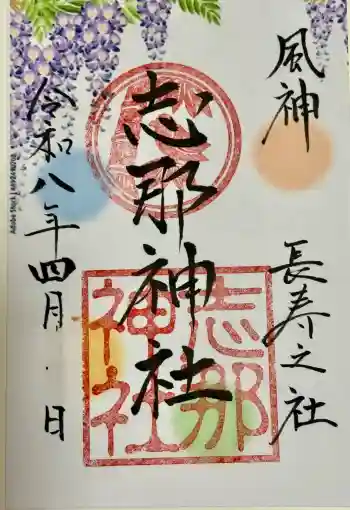 風神
長寿之社
志那神社
志那
神社
令和八年四月・日